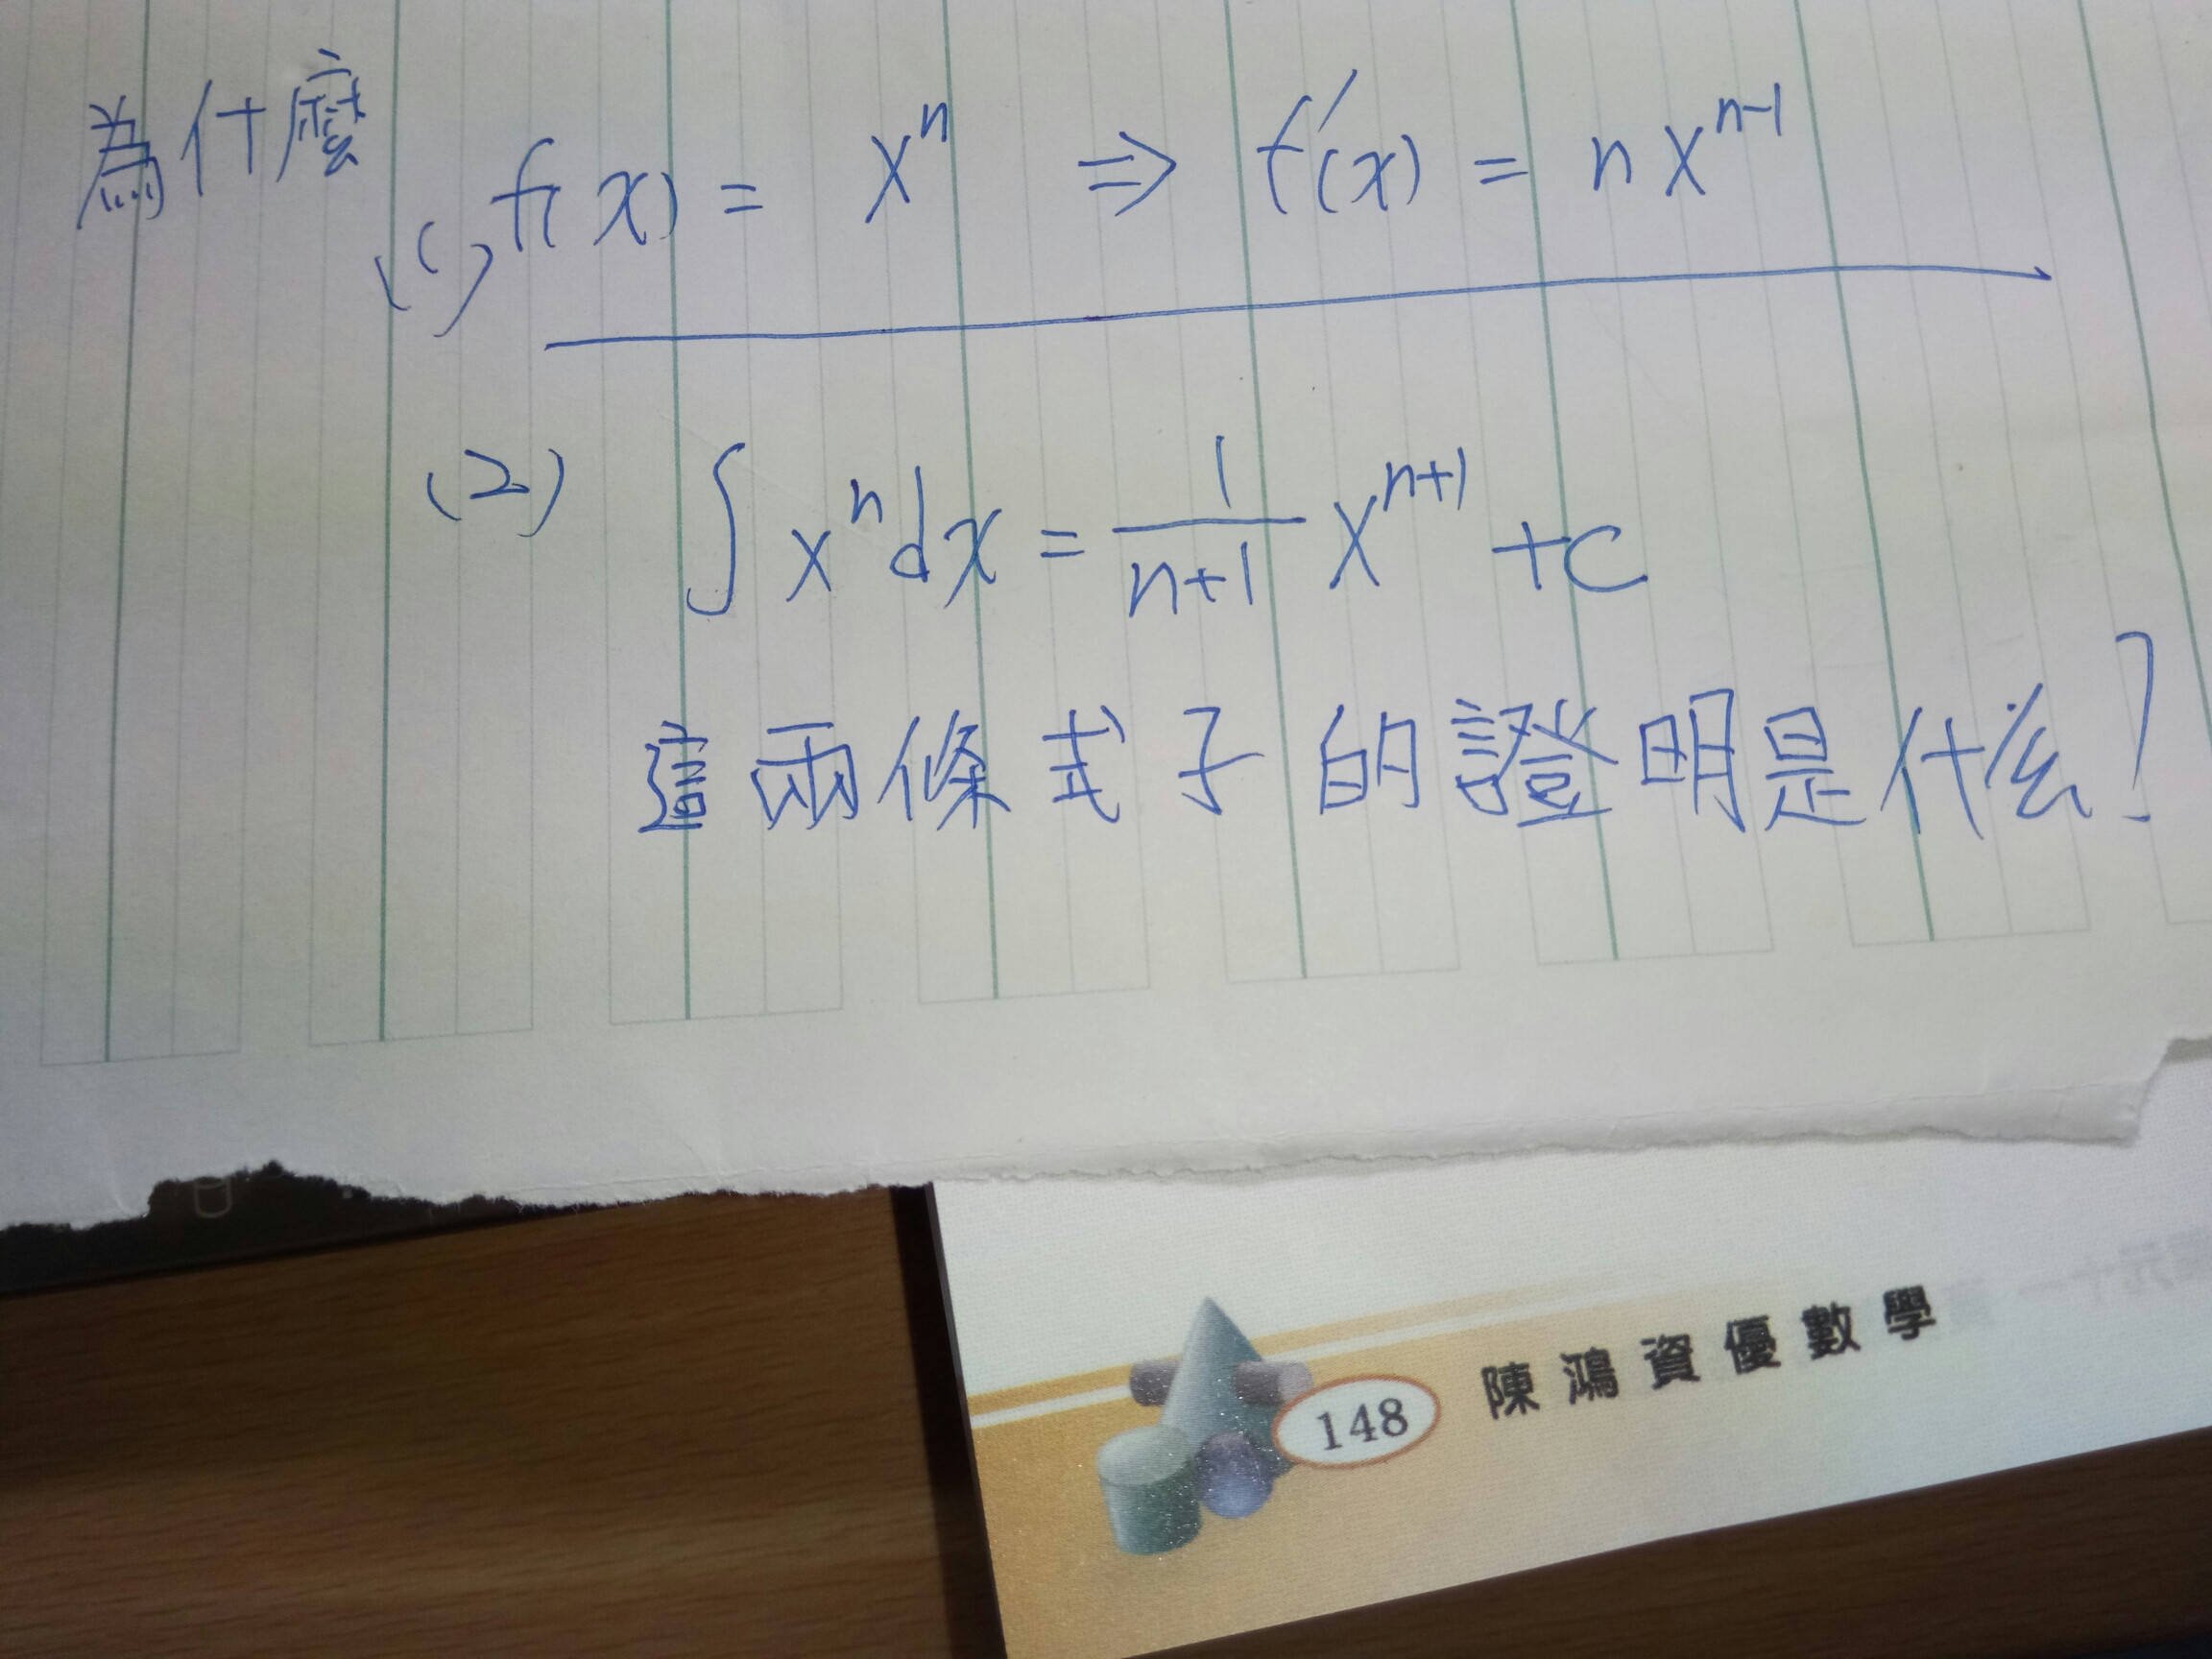 為什麼
(1) f(x) = xⁿ ⇒ f'(x) = n xⁿ⁻¹
(2) ∫ xⁿ dx = 1/(n+1) xⁿ⁺¹ + c
這兩條式子的證明是什么?
148 陳鴻資優數學